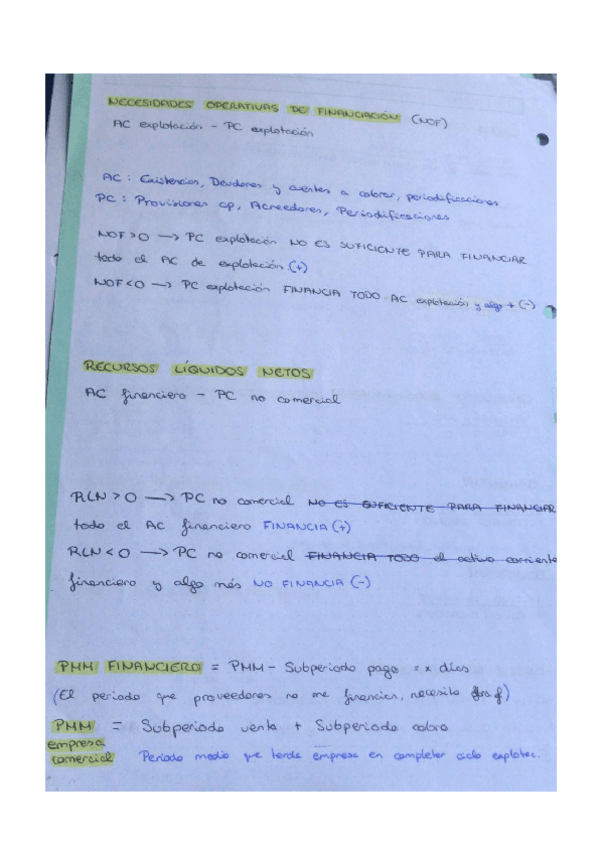 NECESIDADES OPERATIVAS DE FINANCIACIÓN (NOF)
AC explotación - PC explotación
AC: Existencias, Deudores y cuentes a cobrar, periodificaciones
PC: Provisiones cp, Acreedores, Periodificaciones
NOF > 0 → PC explotación NO ES SUFICIENTE PARA FINANCIAR
todo el AC de explotación (+)
NOF < 0 → PC explotación FINANCIA TODO AC explotación y algo + (-)
RECURSOS LÍQUIDOS NETOS
AC financiero - PC no comercial
RLN > 0 → PC no comercial NO ES SUFICIENTE PARA FINANCIAR
todo el AC financiero FINANCIA (+)
RLN < 0 → PC no comercial FINANCIA TODO el activo corriente
financiero y algo más NO FINANCIA (-)
PMM FINANCIERO = PMM - Subperiodo pago = x días
(El periodo que proveedores no me financian, necesito)
PMM = Subperiodo venta + Subperiodo cobro
empresa
comercial Periodo medio que tarda empresa en completar ciclo explotac.